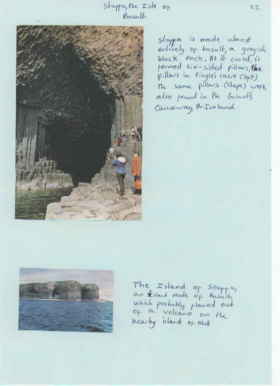 Staffa, the Isle of
Basalt
Staffa is made almost
entirely of basalt, a greyish
black rock. As it cooled, it
formed six-sided pillars, the
pillars in Fingle's cave (left)
The same pillars (shape) were
also found in the Giant's
Causeway in Ireland
The Island of Staffa,
an island made of basalt
which probably flowed out
of a volcano on the
nearby island of Mull